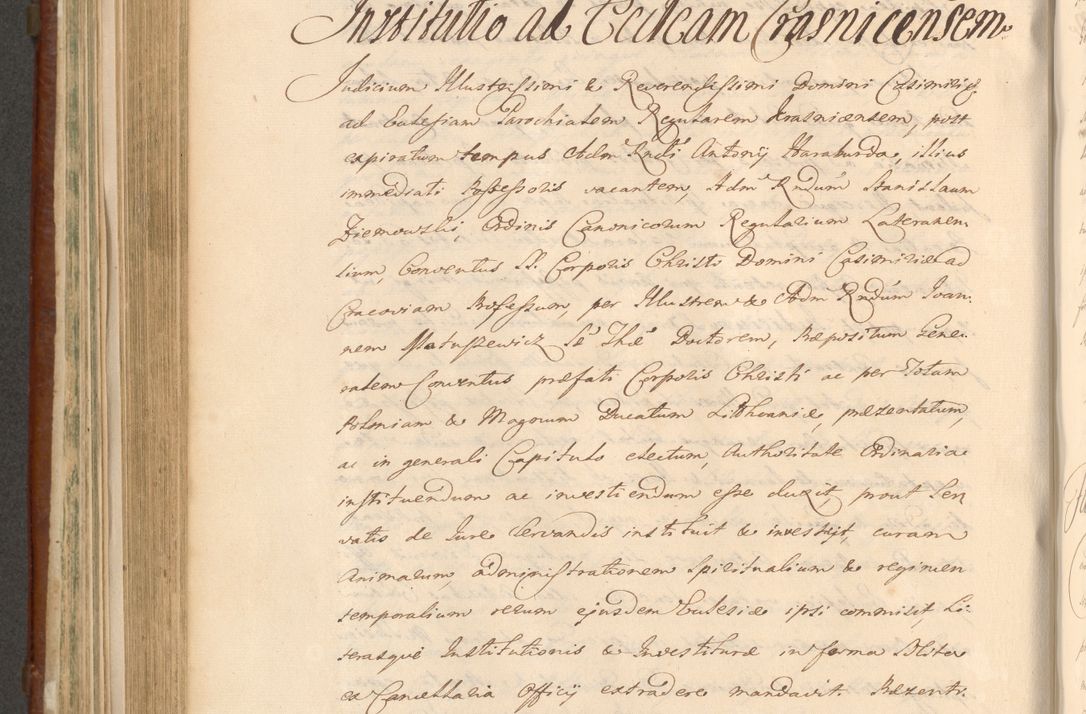 Institutio ad Eccleam Crasnicensem
Judicium Illustrissimi & Reverendissimi Domini Casimiri
ad Ecclesiam Parochialem Regularem Krasnicensem, post
expiratum tempus Adm Rndi Antonij Haraburda, illius
immediati Possessoris vacantem, Adm Rndum Stanislaum
Ziemowski, Ordinis Canonicorum Regularium Lateranen
sium, Conventus SS. Corporis Christi Domini Casimiriae ad
Cracoviam Professum, per Illustrem & Adm Rndum Joan:
nem Matuszewicz Se Thae Doctorem, Præpositum Gene:
ralem Conventus præfati Corporis Christi ac per Totam
Poloniam & Magnum Ducatum Lithvaniæ, præzentatum,
ac in generali Capitulo electum, Authoritate Ordinaria
instituendum ac investiendum esse duxit, prout Ser
vatis de Jure Servandis instituit & investijt, curam
Animarum, administrationem Spiritualium & regimen
temporalium rerum ejusdem Ecclesiæ ipsi commisit, Li:
terasque Institutionis & Investituræ in forma Solita
ex Cancellaria Officij extradere mandavit. Præzenti: